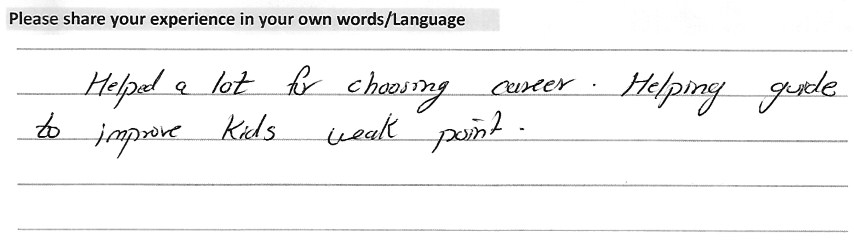 Please share your experience in your own words/Language
Helped a lot for choosing career. Helping guide
to improve Kids weak point.